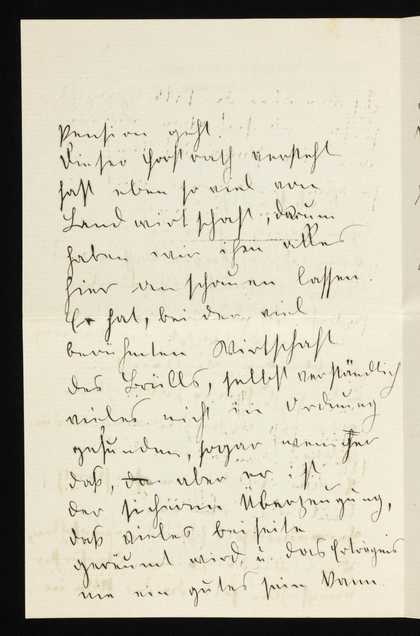 Pension geht!
Dieser Forstrath versteht
fast eben so viel von
Landwirtschaft, darum
haben wir ihn alles
hier anschauen lassen.
Er hat, bei der viel
berühmten Wirtschaft
des Brülls, selbst verständlich
vieles nicht in Ordnung
gefunden, sogar
daß, aber er ist
der sicheren Überzeugung,
daß vieles bei seite
geräumt wird, u. das Erträgnis
nie ein gutes sein kann